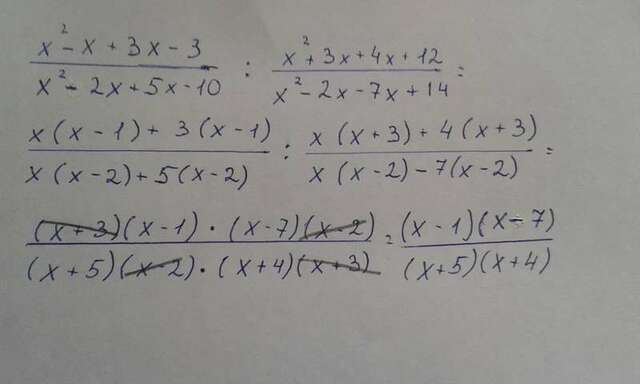 (x² - x + 3x - 3)/(x² - 2x + 5x - 10) : (x² + 3x + 4x + 12)/(x² - 2x - 7x + 14) =
(x(x - 1) + 3(x - 1))/(x(x - 2) + 5(x - 2)) : (x(x + 3) + 4(x + 3))/(x(x - 2) - 7(x - 2)) =
((x + 3)(x - 1) · (x - 7)(x - 2))/((x + 5)(x - 2) · (x + 4)(x + 3)) = ((x - 1)(x - 7))/((x + 5)(x + 4))